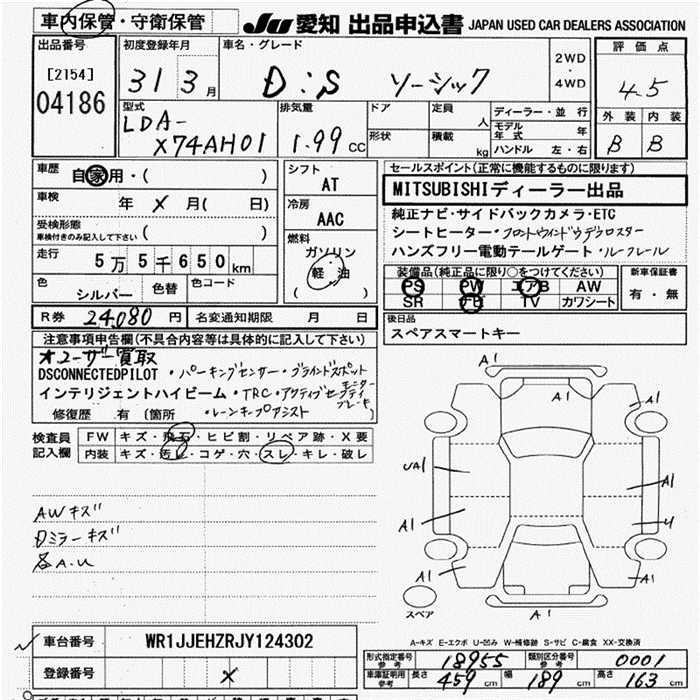 車内保管・守衛保管
JU 愛知 出品申込書 JAPAN USED CAR DEALERS ASSOCIATION
出品番号
[2154]
04186
初度登録年月
31 3月
車名・グレード
D:5 ソーシック
2WD
・
4WD
評価点
4.5
外装 内装
B B
型式
LDA-
X74AH01
排気量
1.99 CC
ドア
形状
定員 人
積載 kg
ディーラー・並行
モデル年式 年
ハンドル 左・右
車歴
自家用・( )
車検 年 × 月( 日)
受検形態
車検付きのみ記入して下さい ( )
走行 5万5千650km
色 シルバー
色替
色コード
シフト
AT
冷房
AAC
燃料
ガソリン
軽油
( )
R券 24,080 円 名変通知期限 月 日
セールスポイント(正常に機能するものに限ります)
MITSUBISHIディーラー出品
純正ナビ・サイドバックカメラ・ETC
シートヒーター・フロントウインドウデフロスター
ハンズフリー電動テールゲート・ルーフレール
装備品(純正品に限り○をつけてください)
PS PW エアB AW
SR TV カワシート
新車保証書
有・無
後日品
スペアスマートキー
注意事項申告欄(不具合内容等は具体的に記入して下さい)
オユーザー買取
DSCONNECTEDPILOT・パーキングセンサー・ブラインドスポットモニター
インテリジェントハイビーム・TRC・アクティブセーフティブレーキ
修復歴 有(箇所 ・レーンキープアシスト
検査員記入欄
FW キズ・飛石・ヒビ割・リペア跡・X要
内装 キズ・汚レ・コゲ・穴・スレ・キレ・破レ
AWキズ
Dミラーキズ
各A.U
A1
A1
A1
UA1
A1
A1
U
A1
A1
A1
スペア
A-キズ E-エクボ U-凹み W-補修跡 S-サビ C-腐食 XX-交換済
車台番号 WR1JJEHZRJY124302
登録番号 ×
形式指定番号 参考 18955 類別区分番号 参考 0001
車庫証明用 参考 長さ 459 cm 幅 189 cm 高さ 163 cm